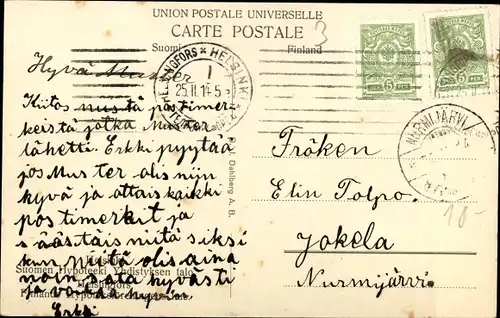 UNION POSTALE UNIVERSELLE
CARTE POSTALE
Suomi
Finland
3
HELSINGFORS × HELSINKI
I
25.II.14.5
5
5
Hyvä Muster
Kiitos niistä postimer
keistä jotka Muster
lähetti. Erkki pyytää
jos Muster olis niin
hyvä ja ottais kaikki
postimerkit ja
säästäis niitä siksi
kun niitä olis aina
noin sata hyvästi
ja voikaa hyvin.
Erkki
Suomen Hypoteeki Yhdistyksen talo
Helsingfors
Dahlberg A. B.
NURMIJÄRVI
Fröken
Elin Tolpo.
Jokela
Nurmijärvi
10-